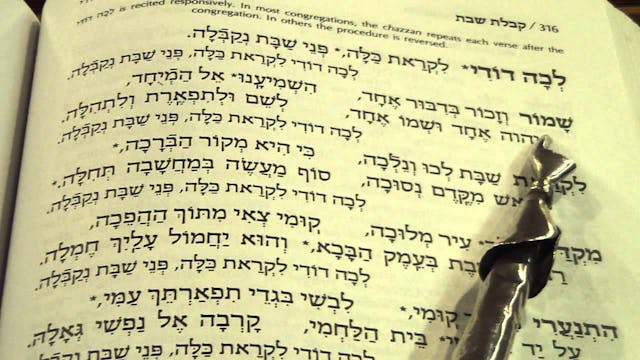 316 / קבלת שבת
is recited responsively. In most congregations, the chazzan repeats each verse after the
congregation. In others the procedure is reversed.
לְכָה דוֹדִי* לִקְרַאת כַּלָּה,* פְּנֵי שַׁבָּת נְקַבְּלָה.
לְכָה דוֹדִי לִקְרַאת כַּלָּה, פְּנֵי שַׁבָּת נְקַבְּלָה.
שָׁמוֹר וְזָכוֹר בְּדִבּוּר אֶחָד, הִשְׁמִיעָנוּ* אֵל הַמְּיֻחָד,
יהוה אֶחָד וּשְׁמוֹ אֶחָד, לְשֵׁם וּלְתִפְאֶרֶת וְלִתְהִלָּה.
לְכָה דוֹדִי לִקְרַאת כַּלָּה, פְּנֵי שַׁבָּת נְקַבְּלָה.
שַׁבָּת לְכוּ וְנֵלְכָה, כִּי הִיא מְקוֹר הַבְּרָכָה,*
מִקֶּדֶם נְסוּכָה, סוֹף מַעֲשֶׂה בְּמַחֲשָׁבָה תְּחִלָּה.*
לְכָה דוֹדִי לִקְרַאת כַּלָּה, פְּנֵי שַׁבָּת נְקַבְּלָה.
עִיר מְלוּכָה, קוּמִי צְאִי מִתּוֹךְ הַהֲפֵכָה,
בְּעֵמֶק הַבָּכָא,* וְהוּא יַחֲמוֹל עָלַיִךְ חֶמְלָה.
לְכָה דוֹדִי לִקְרַאת כַּלָּה, פְּנֵי שַׁבָּת נְקַבְּלָה.
הִתְנַעֲרִי קוּמִי, לִבְשִׁי בִּגְדֵי תִפְאַרְתֵּךְ עַמִּי,*
עַל יַד בֵּית הַלַּחְמִי, קָרְבָה אֶל נַפְשִׁי גְאָלָהּ.
לְכָה דוֹדִי לִקְרַאת כַּלָּה, פְּנֵי שַׁבָּת נְקַבְּלָה.